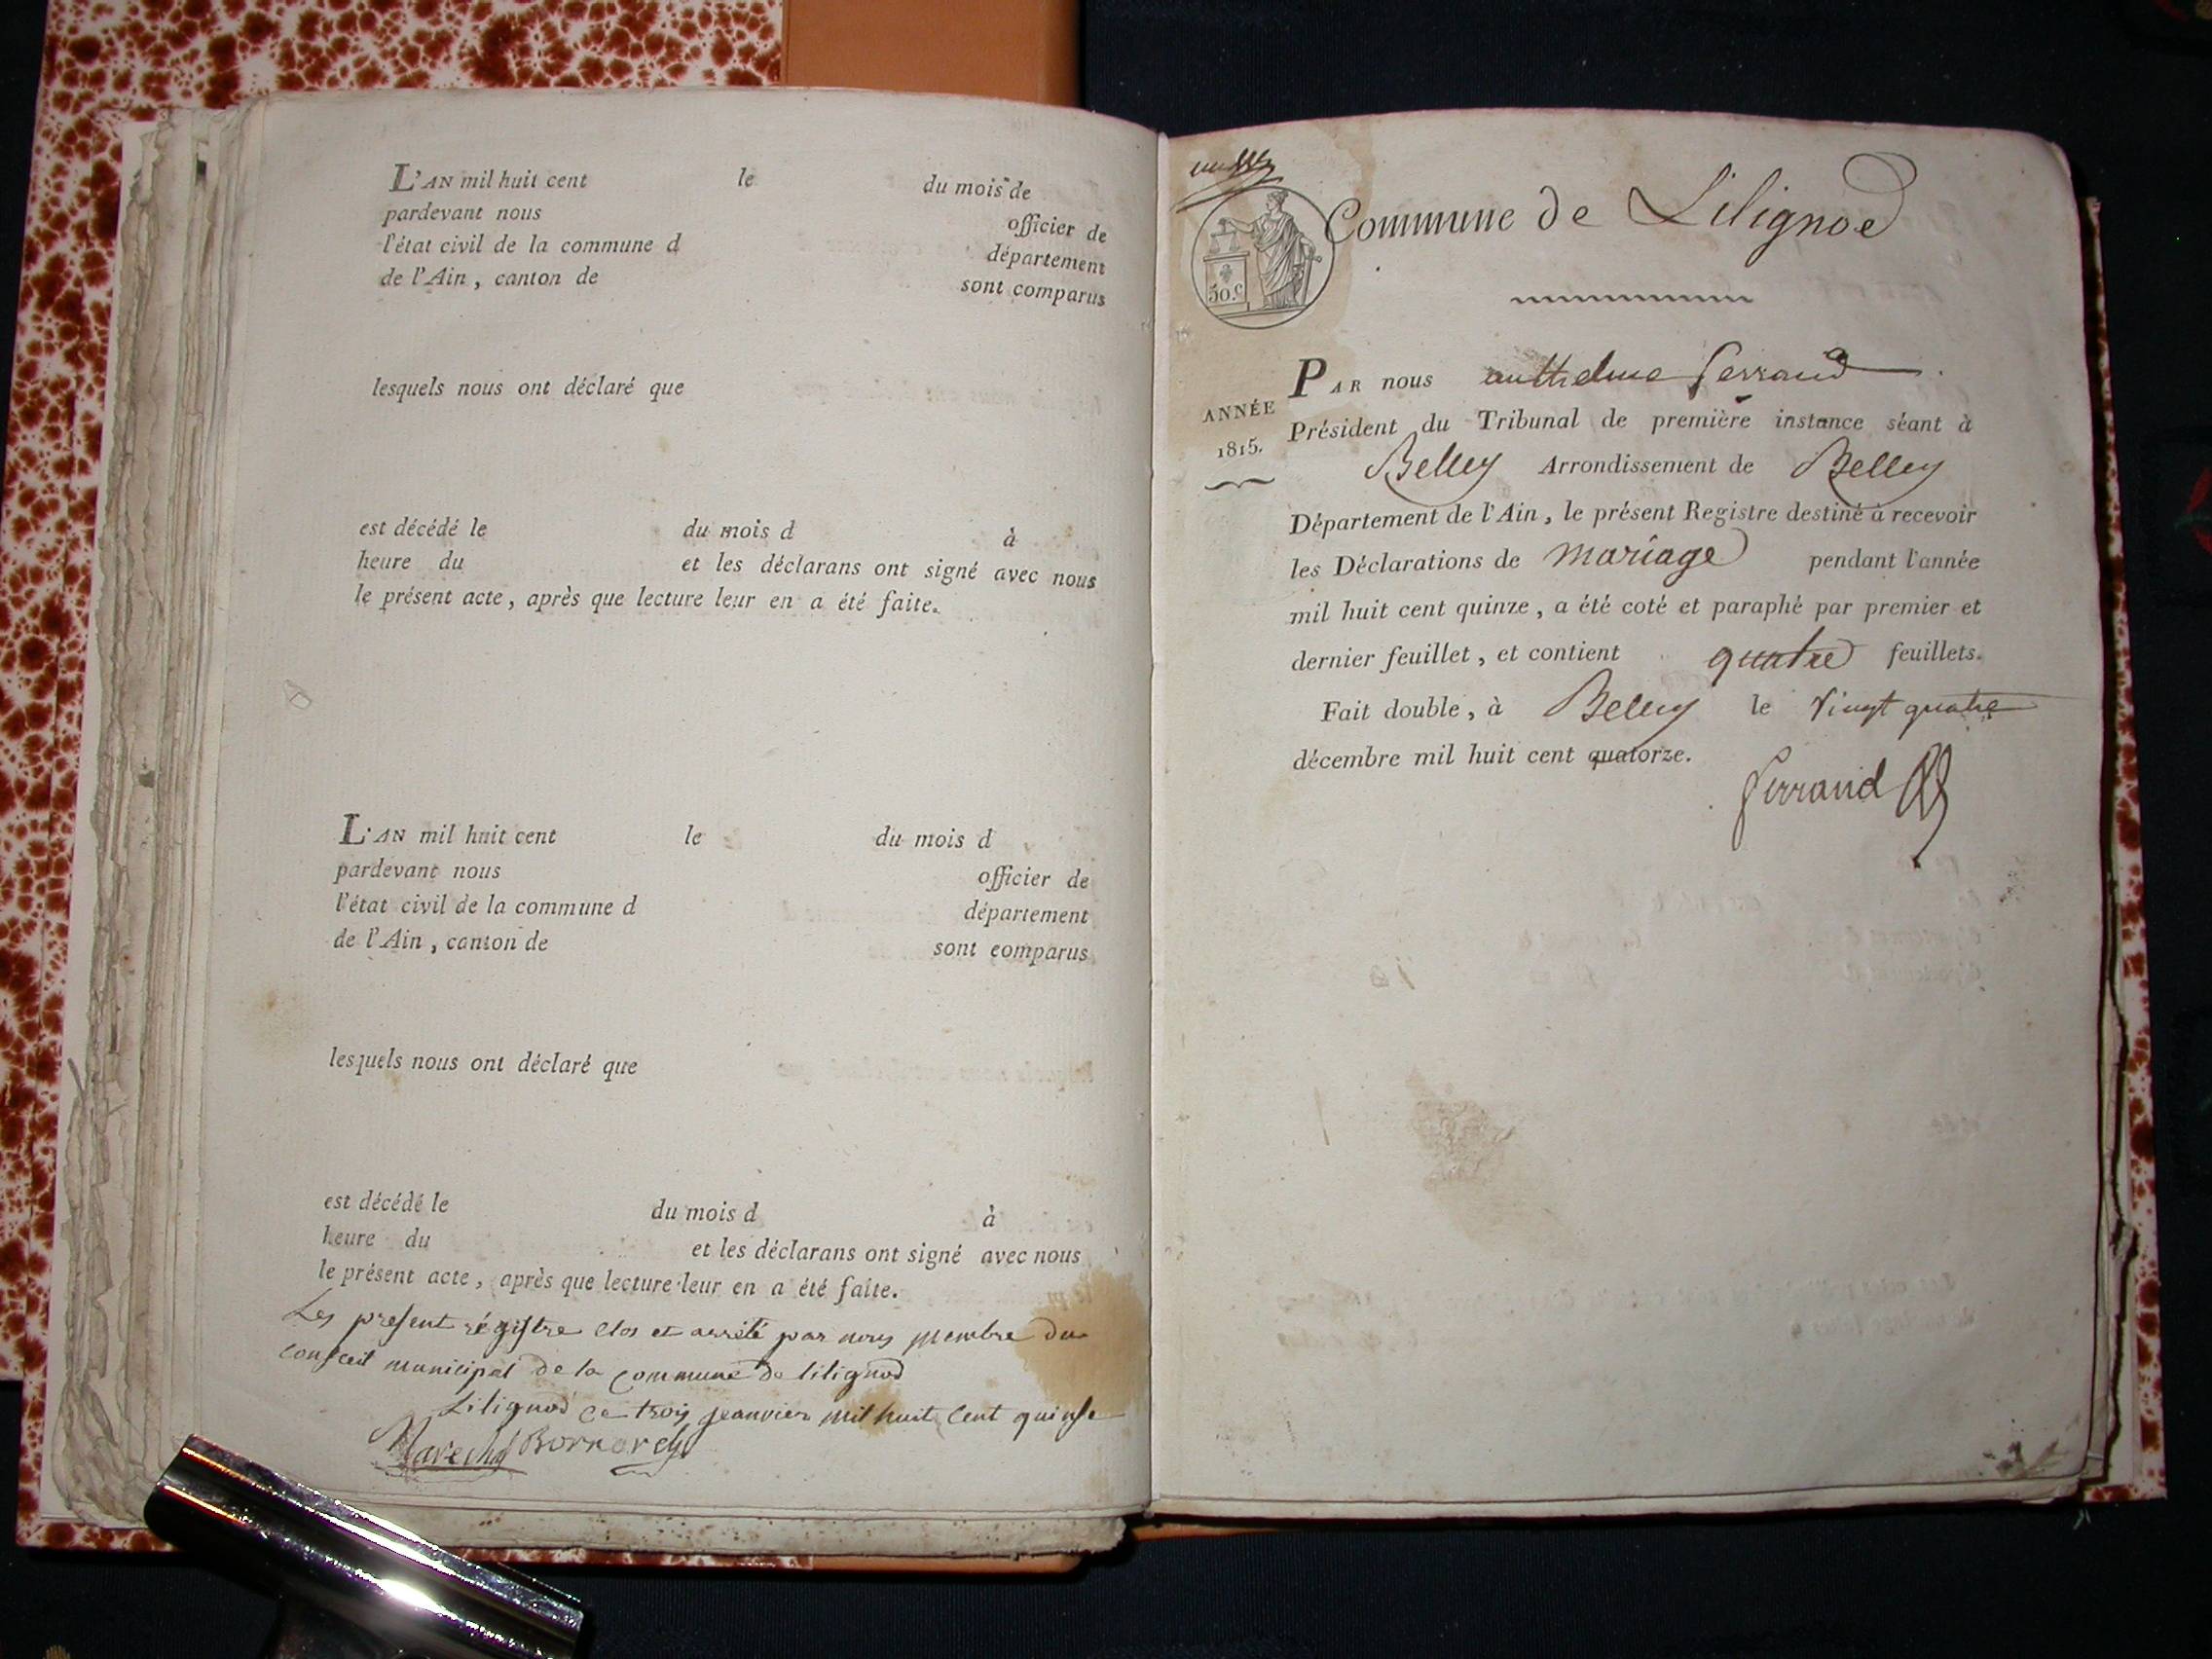 L'AN mil huit cent le du mois de
pardevant nous officier de
l'état civil de la commune d département
de l'Ain, canton de sont comparus
lesquels nous ont déclaré que
est décédé le du mois d à
heure du et les déclarans ont signé avec nous
le présent acte, après que lecture leur en a été faite.
L'AN mil huit cent le du mois d
pardevant nous officier de
l'état civil de la commune d département
de l'Ain, canton de sont comparus
lesquels nous ont déclaré que
est décédé le du mois d à
heure du et les déclarans ont signé avec nous
le présent acte, après que lecture leur en a été faite.
Les present régistre clos et arrêté par nous membre du
conseil municipal de la commune de lilignod
Lilignod ce trois jeanvier mil huit cent quinse
Marechal
Commune de Lilignod
50.C
PAR nous anthelme ferrand
ANNÉE
1815.
Président du Tribunal de première instance séant à
Belley Arrondissement de Belley
Département de l'Ain, le présent Registre destiné à recevoir
les Déclarations de mariage pendant l'année
mil huit cent quinze, a été coté et paraphé par premier et
dernier feuillet, et contient quatre feuillets.
Fait double, à Belley le vingt quatre
décembre mil huit cent quatorze.
ferrand